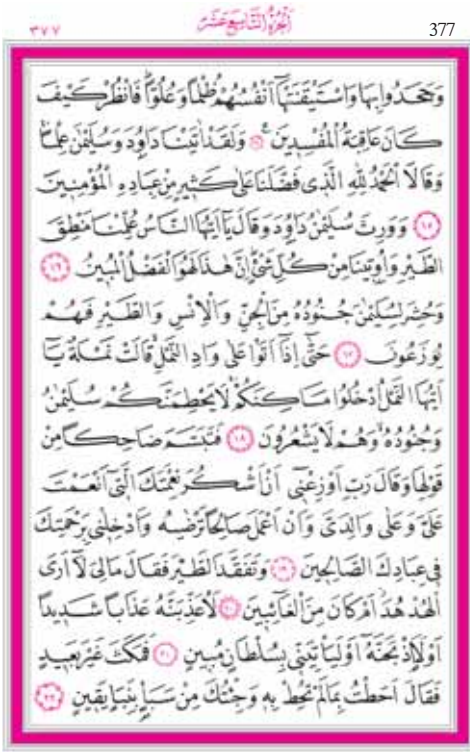 ٣٧٧ اَلْجُزْءُ التَّاسِعَ عَشَرَ 377
وَجَحَدُوا بِهَا وَاسْتَيْقَنَتْهَٓا اَنْفُسُهُمْ ظُلْمًا وَعُلُوًّاۜ فَانْظُرْ كَيْفَ
كَانَ عَاقِبَةُ الْمُفْسِدِينَ۟ ﴿١٤﴾ وَلَقَدْ اٰتَيْنَا دَاوُ۫دَ وَسُلَيْمٰنَ عِلْمًاۚ
وَقَالَا الْحَمْدُ لِلّٰهِ الَّذِي فَضَّلَنَا عَلٰى كَثِيرٍ مِنْ عِبَادِهِ الْمُؤْمِنِينَ
﴿١٥﴾ وَوَرِثَ سُلَيْمٰنُ دَاوُ۫دَ وَقَالَ يَٓا اَيُّهَا النَّاسُ عُلِّمْنَا مَنْطِقَ
الطَّيْرِ وَاُو۫تِينَا مِنْ كُلِّ شَيْءٍۜ اِنَّ هٰذَا لَهُوَ الْفَضْلُ الْمُبِينُ ﴿١٦﴾
وَحُشِرَ لِسُلَيْمٰنَ جُنُودُهُ مِنَ الْجِنِّ وَالْاِنْسِ وَالطَّيْرِ فَهُمْ
يُوزَعُونَ ﴿١٧﴾ حَتّٰٓى اِذَٓا اَتَوْا عَلٰى وَادِ النَّمْلِۙ قَالَتْ نَمْلَةٌ يَٓا
اَيُّهَا النَّمْلُ ادْخُلُوا مَسَاكِنَكُمْۚ لَا يَحْطِمَنَّكُمْ سُلَيْمٰنُ
وَجُنُودُهُۙ وَهُمْ لَا يَشْعُرُونَ ﴿١٨﴾ فَتَبَسَّمَ ضَاحِكًا مِنْ
قَوْلِهَا وَقَالَ رَبِّ اَوْزِعْنِٓي اَنْ اَشْكُرَ نِعْمَتَكَ الَّتِٓي اَنْعَمْتَ
عَلَيَّ وَعَلٰى وَالِدَيَّ وَاَنْ اَعْمَلَ صَالِحًا تَرْضٰيهُ وَاَدْخِلْنِي بِرَحْمَتِكَ
فِي عِبَادِكَ الصَّالِحِينَ ﴿١٩﴾ وَتَفَقَّدَ الطَّيْرَ فَقَالَ مَا لِيَ لَٓا اَرَى
الْهُدْهُدَۘ اَمْ كَانَ مِنَ الْغَٓائِبِينَ ﴿٢٠﴾ لَاُعَذِّبَنَّهُ عَذَابًا شَدِيدًا
اَوْ لَا۬اَذْبَحَنَّهُٓ اَوْ لَيَأْتِيَنِّي بِسُلْطَانٍ مُبِينٍ ﴿٢١﴾ فَمَكَثَ غَيْرَ بَعِيدٍ
فَقَالَ اَحَطْتُ بِمَا لَمْ تُحِطْ بِهِ وَجِئْتُكَ مِنْ سَبَأٍ بِنَبَأٍ يَقِينٍ ﴿٢٢﴾